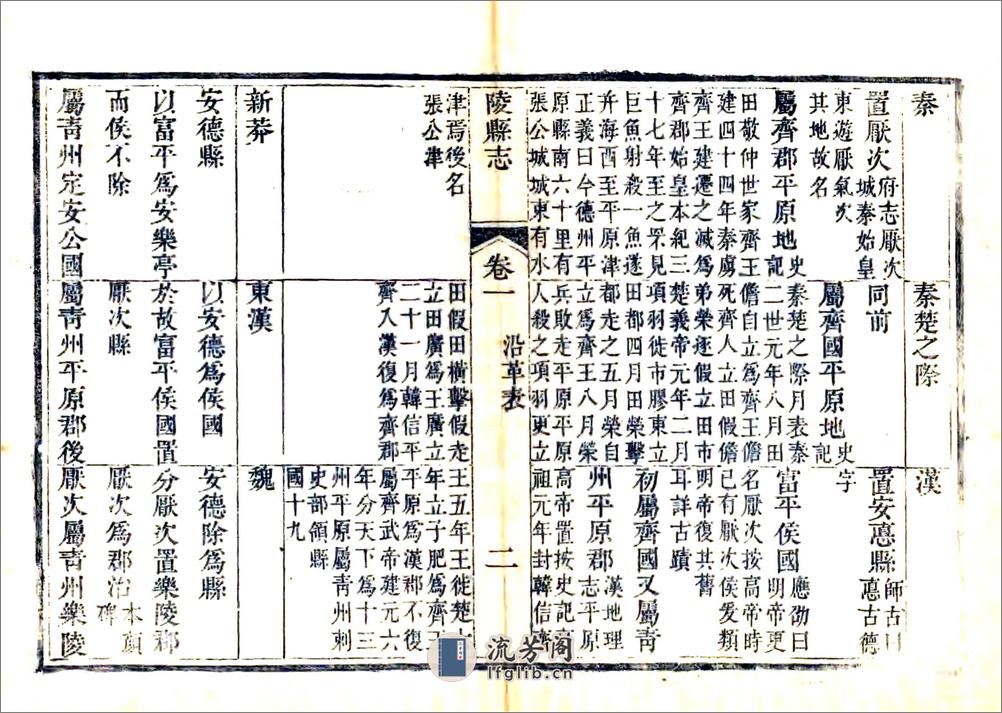 秦
置厭次
府志厭次
城秦始皇
東遊厭氣次
其地故名
屬齊郡平原地
史
記
田敬仲世家齊王
建四十四年秦虜
齊王建遷之滅爲
齊郡始皇本紀三
十七年至之罘見
巨魚射殺一魚遂
并海西至平原津
正義曰今德州平
原縣南六十里有
張公城城東有水
津焉後名
張公津
秦楚之際
同前
屬齊國平原地
史
記
秦楚之際月表秦
二世元年八月田
儋自立爲齊王儋
死齊人立田假儋
弟榮逐假立田市
楚義帝元年二月
項羽徙市膠東立
田都四月田榮擊
都走之五月榮自
立爲齊王八月榮
兵敗走平原平原
人殺之項羽更立
田假田橫擊假走
立田廣爲王廣立
二十一月韓信平
齊入漢復爲齊郡
漢
置安悳縣
師古曰
悳古德
字
富平侯國
應劭曰
明帝更
名厭次按高帝時
已有厭次侯爰類
明帝復其舊
耳詳古蹟
初屬齊國又屬靑
州平原郡
漢地理
志平原
高帝置按史記高
祖元年封韓信齊
王五年王徙楚
年立子肥爲齊王
平原爲漢郡不復
屬齊武帝建元六
年分天下爲十三
州平原屬靑州刺
史部領縣
國十九
陵縣志
卷一
沿革表
二
新莽
安德縣
以富平爲安樂亭
而侯不除
屬靑州定安公國
東漢
以安德爲侯國
於故富平侯國置
厭次縣
屬靑州平原郡後
魏
安德除爲縣
分厭次置樂陵郡
厭次爲郡治
本顏
碑
厭次屬靑州樂陵
流芳阁
lfglib.cn